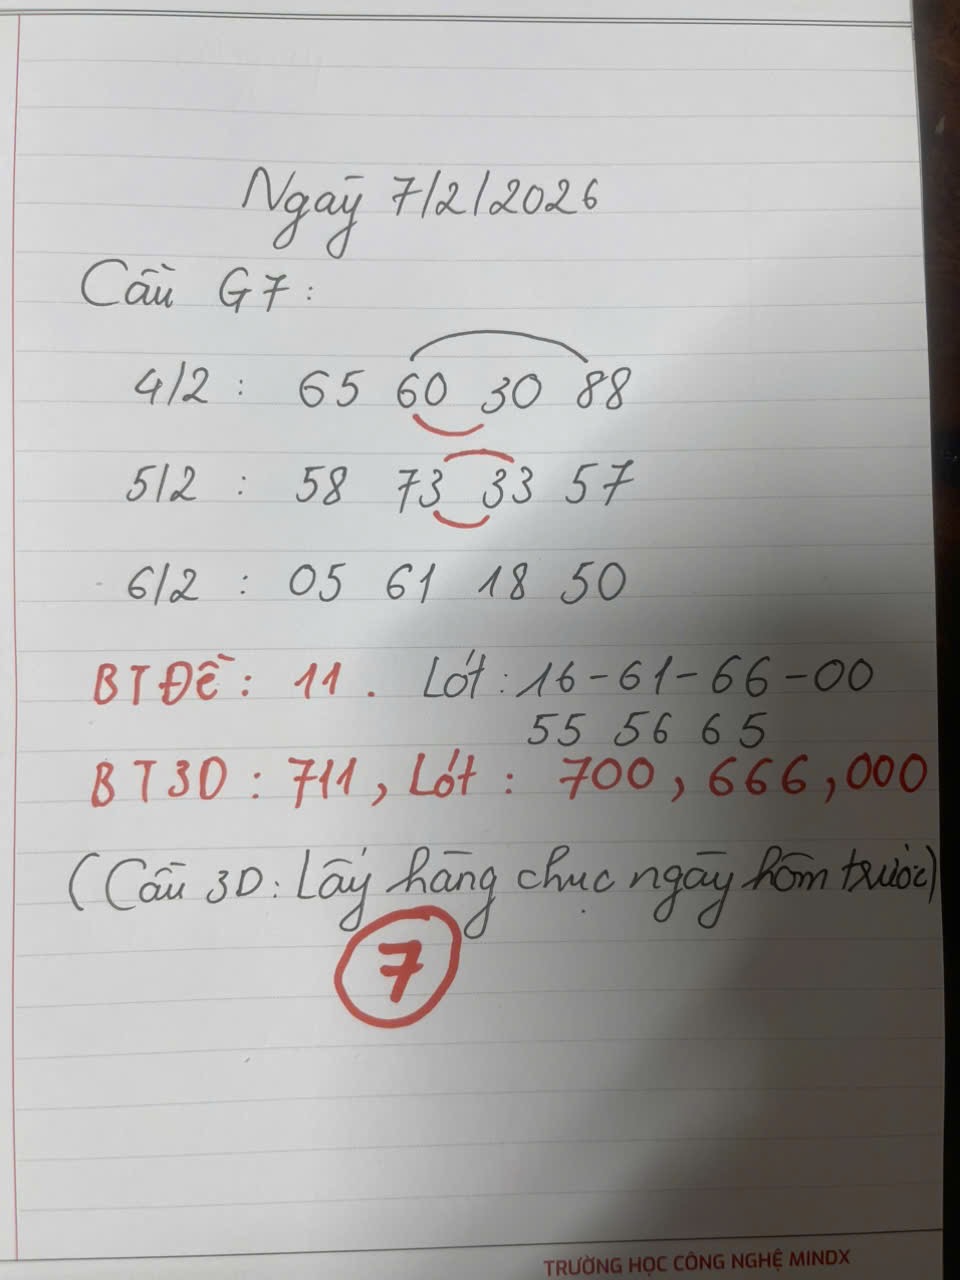 Ngày 7/2/2026
Cầu G7:
4/2 : 65 60 30 88
5/2 : 58 73 33 57
6/2 : 05 61 18 50
BTĐề: 11. Lót: 16-61-66-00
55 56 65
BT3D: 711, Lót: 700, 666, 000
(Cầu 3D: Lấy hàng chục ngày hôm trước)
7
TRƯỜNG HỌC CÔNG NGHỆ MINDX